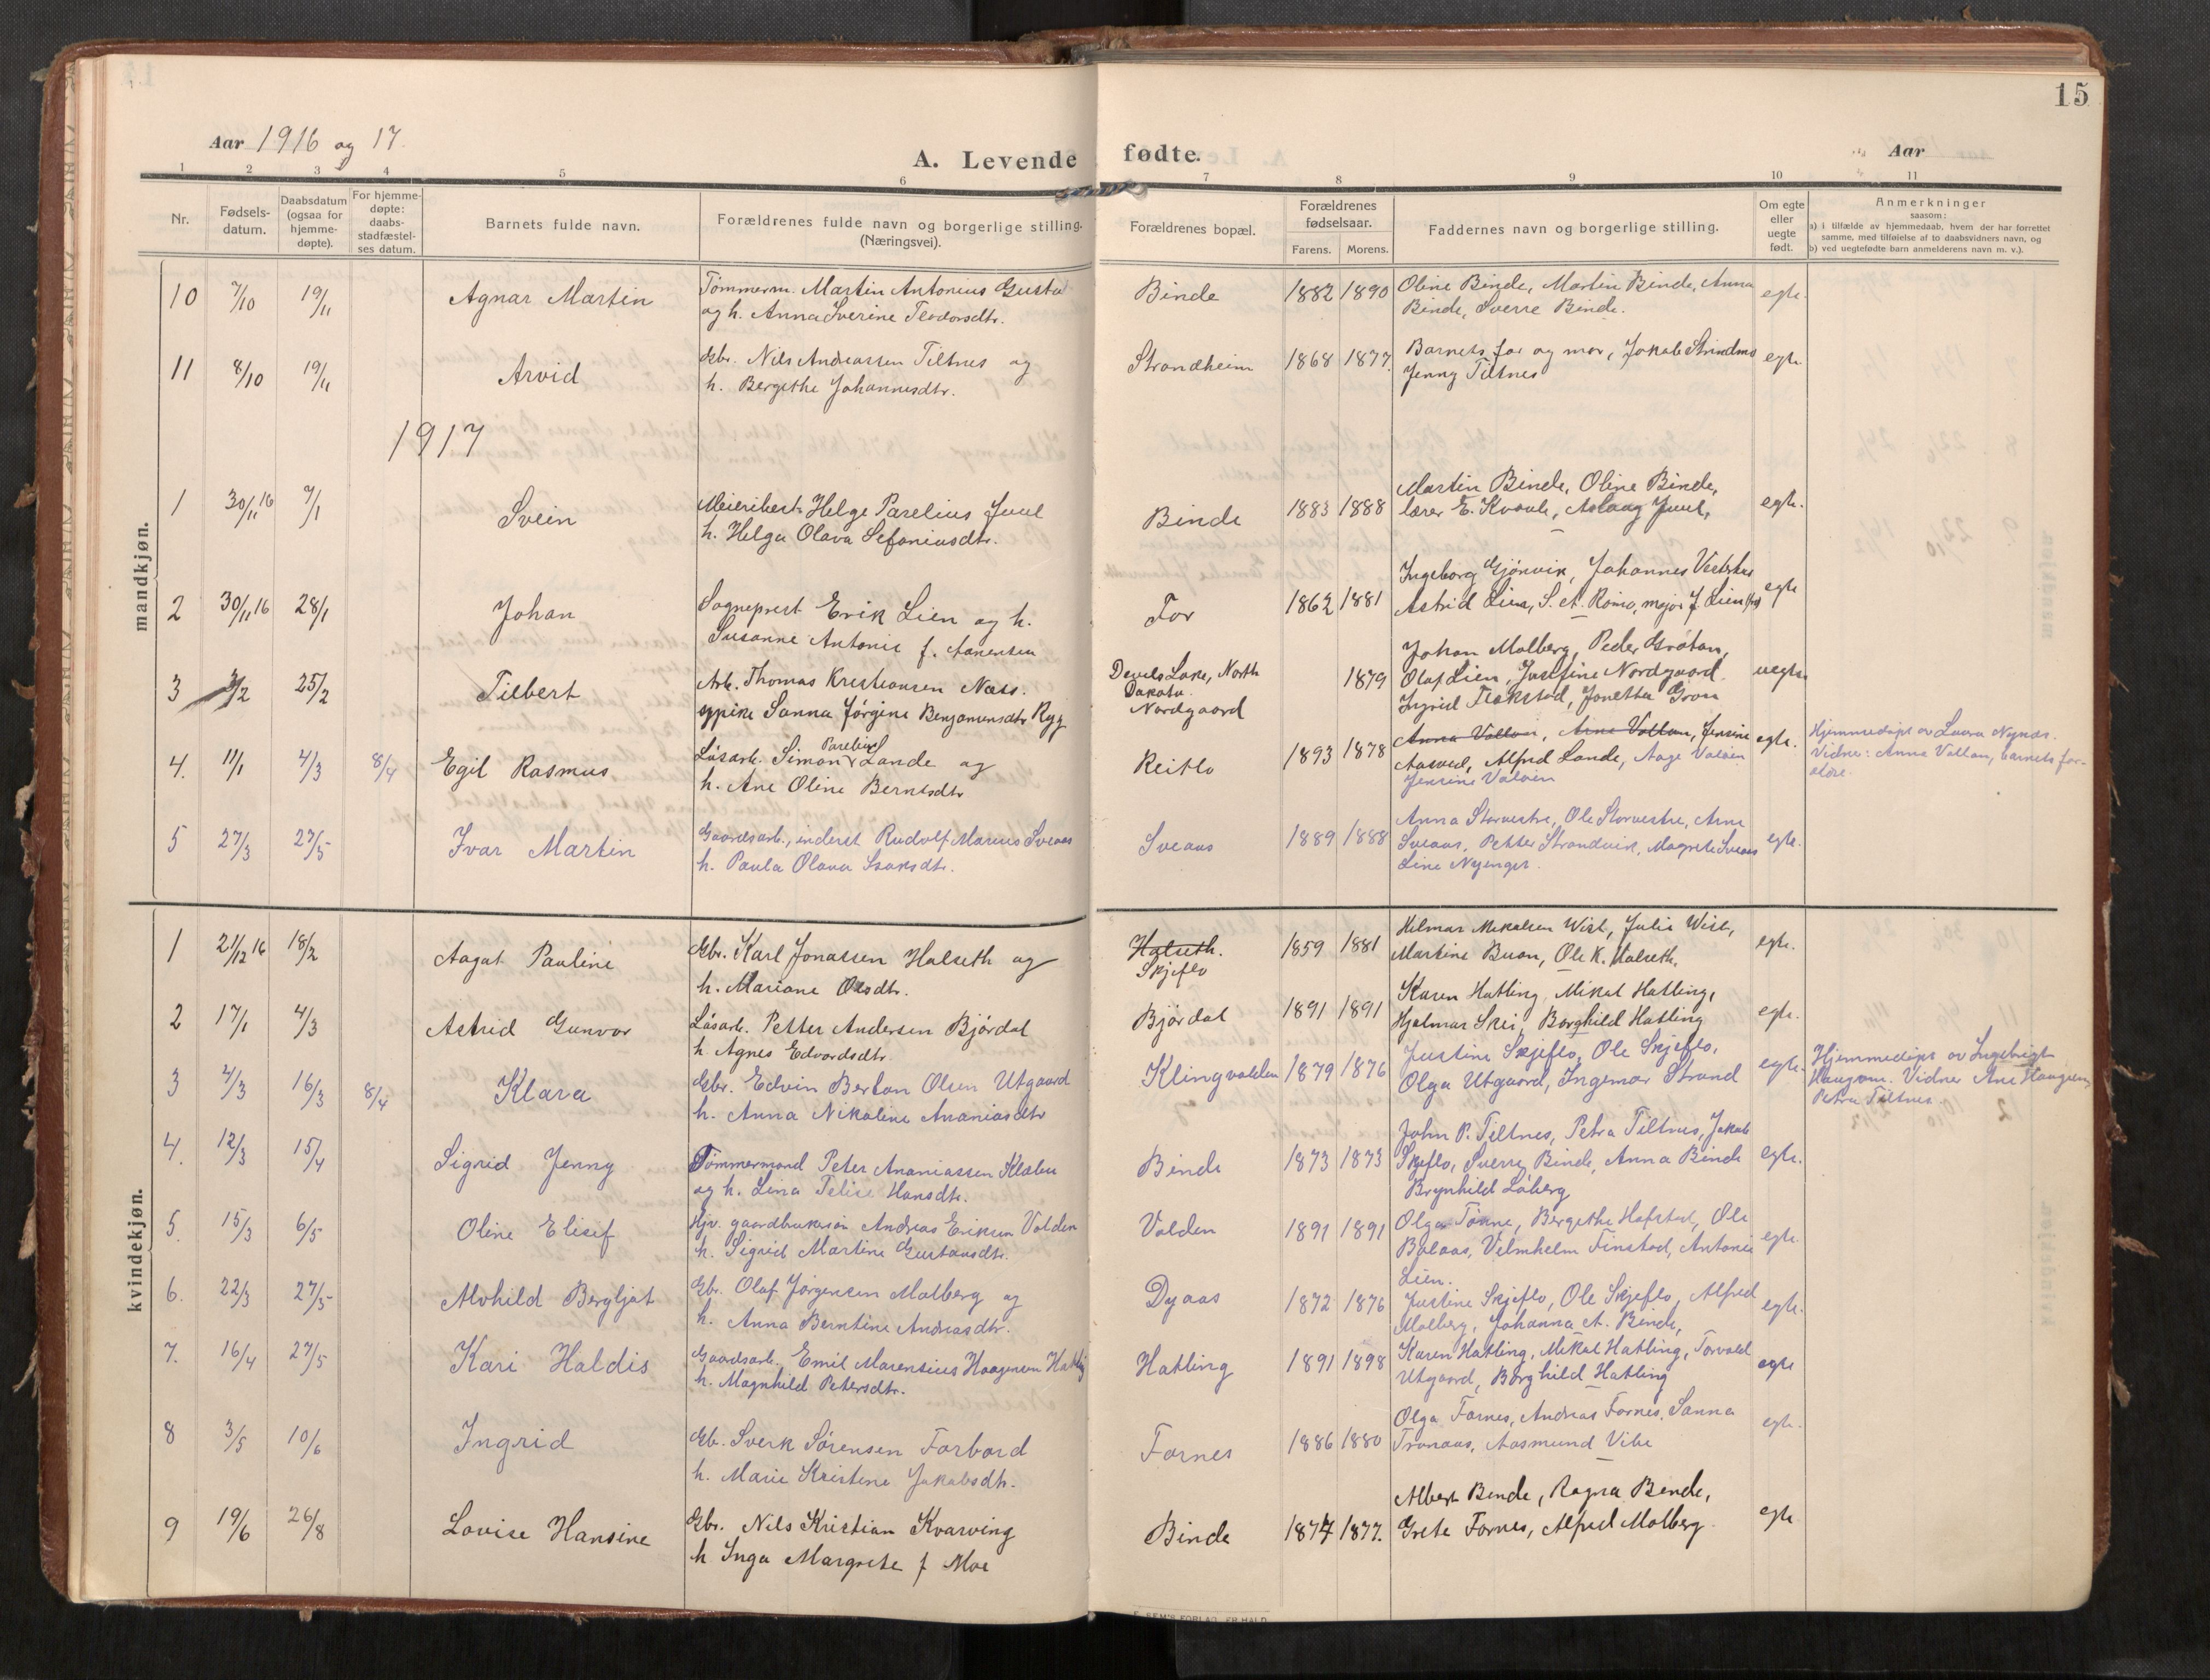 15
Aar 1916 og 17.
A. Levende fødte.
Aar
1 2 3 4 5 6 7 8 9 10 11
Nr.
Fødsels-
datum.
Daabsdatum
(ogsaa for
hjemme-
døpte).
For hjemme-
døpte:
daabs-
stadfæstel-
ses datum.
Barnets fulde navn.
Forældrenes fulde navn og borgerlige stilling.
(Næringsvei).
Forældrenes bopæl.
Forældrenes
fødselsaar.
Farens. Morens.
Faddernes navn og borgerlige stilling.
Om egte
eller
uegte
født.
Anmerkninger
saasom:
a) i tilfælde av hjemmedaab, hvem der har forrettet
samme, med tilføielse af to daabsvidners navn, og
b) ved uegtefødte barn anmelderens navn m. v.).
mandkjøn.
10 7/10 19/11 Agnar Martin
Tømmerm. Martin Antonius Gusta
og h. Anna Sverine Teodorsdtr.
Binde 1882 1890
Oline Binde, Martin Binde, Anna
Binde, Sverre Binde.
egte.
11 8/10 19/11 Arvid
Gbr. Nils Andreassen Tiltnes og
h. Bergithe Johannesdtr.
Strandheim 1868 1877.
Barnets far og mor, Jakob Strindmo
Jenny Tiltnes
egte.
1917
1 30/11 16 7/1 Svein
Meieribest. Helge Parelius Juul
h. Helga Olava Sefaniasdtr.
Binde 1883 1888
Martin Binde, Oline Binde,
lærer E. Kvaale, Aslaug Juul,
egte.
2 30/11 16 28/1 Johan
Sogneprest Erik Lien og h.
Susanne Antonie f. Aanensen
For 1862 1881
Ingeborg Gjønvik, Johannes
Astrid Lien, S. A. Romo, major J. Lien
egte
3 3/2 25/2 Tilbert
Arb. Thomas Kristiansen Næss.
og pike Sanna Jørgine Benjamensdtr Ryg
Devels Lake, North
Dakota.
Nordgaard
1879
Johan Molberg, Peder Grøtan,
Olaf Lien, Justine Nordgaard.
Ingrid Flekstad, Jonetta Grøva
uegte
4. 11/1 4/3 8/4 Egil Rasmus
Løsarb. Simon Parelius Lande og
h. Ane Oline Berntsdtr
Reitlo 1893 1878
Anna Vollan, Arne Vollan, Jensine
Aasved, Alfred Lande, Aage Valøin
Jensine Valøin
egte.
Hjemmedøpt av Laura Nynæs.
Vidner: Anna Vollan, barnets for-
ældre.
5 27/3 27/5 Ivar Martin
Gaardsarb., inderst Rudolf Marius Sveaas
h. Paula Olava Isaksdtr.
Sveaas 1889 1888
Anna Storvestre, Ole Storvestre, Arne
Sveaas, Petter Strandvik, Magrete Sveaas
Line Nyenget.
egte.
kvindekjøn.
1 21/12 16 18/2 Aagat Pauline
Gbr. Karl Jonassen Halseth og
h. Mariane Olsdtr.
Halseth.
Skjeflo
1859 1881
Hilmar Mikalsen Wist, Julie Wist,
Martine Buan, Ole K. Halseth.
egte.
2 17/1 4/3 Astrid Gunvor
Løsarb. Petter Andersen Bjørdal
h. Agnes Edvardsdtr.
Bjørdal 1891 1891
Karen Hatling, Mikal Hatling,
Hjalmar Skei, Borghild Hatling
egte.
3 4/3 16/3 8/4 Klara
Gbr. Edvin Bertan Olsen Utgaard
h. Anna Nikoline Ananiasdtr
Klingvolden 1879 1876
Justine Skjeflo, Ole Skjeflo,
Olga Utgaard, Ingemar Strand
egte.
Hjemmedøpt av Ingebrigt
Haugsm. Vidner Ane Haugum,
Petra Tiltnes.
4. 12/3 15/4 Sigrid Jenny
Tømmermand Peter Ananiassen Klæbu
og h. Lina Felise Hansdtr.
Binde 1873 1873
John P. Tiltnes, Petra Tiltnes, Jakob
Skjeflo, Sverre Binde, Anna Binde
Brynhild Løberg
egte.
5. 15/3 6/5 Oline Elisef
Hjv. gaardbrukersøn Andreas Eriksen Volden
h. Sigrid Martine Gustavsdtr.
Volden 1891 1891
Olga Tønne, Bergithe Hofstad, Ole
Balaas, Vilmhelm Finstad, Antonie
Lien.
egte.
6. 22/3 27/5 Alvhild Bergljot
Gbr. Olaf Jørgensen Molberg og
h. Anna Berntine Andreasdtr.
Dyaas 1872 1876
Justine Skjeflo, Ole Skjeflo, Alfred
Molberg, Johanna A. Binde,
egte.
7. 16/4 27/5 Kari Haldis
Gaardsarb. Emil Marensius Haagensen Hatling
h. Magnhild Petersdtr.
Hatling 1891 1898
Karen Hatling, Mikal Hatling, Torvald
Utgaard, Borghild Hatling
egte
8 3/5 10/6 Ingrid
Gb. Sverk Sørensen Forbord
h. Marie Kristine Jakobsdtr.
Fornes 1886 1880
Olga Fornes, Andreas Fornes, Sanna
Tronaas, Aasmund Vibe
egte.
9 19/6 26/8 Lovise Hansine
Gbr. Nils Kristian Kvarving
h Inga Margrete f Moe
Binde 1877 1877.
Albert Binde, Ragna Binde,
Grete Fornes, Alfred Molberg.
egte
E. SEM'S FORLAG, FR.HALD